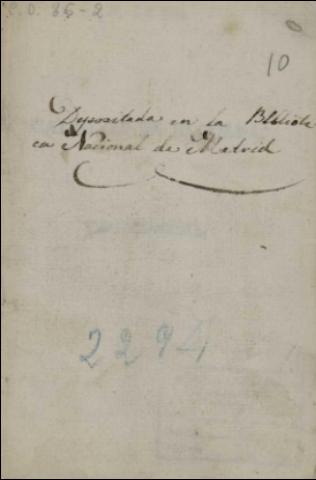 C.D. 36-2
10
Depositada en la Bibliote
ca Nacional de Madrid
2294